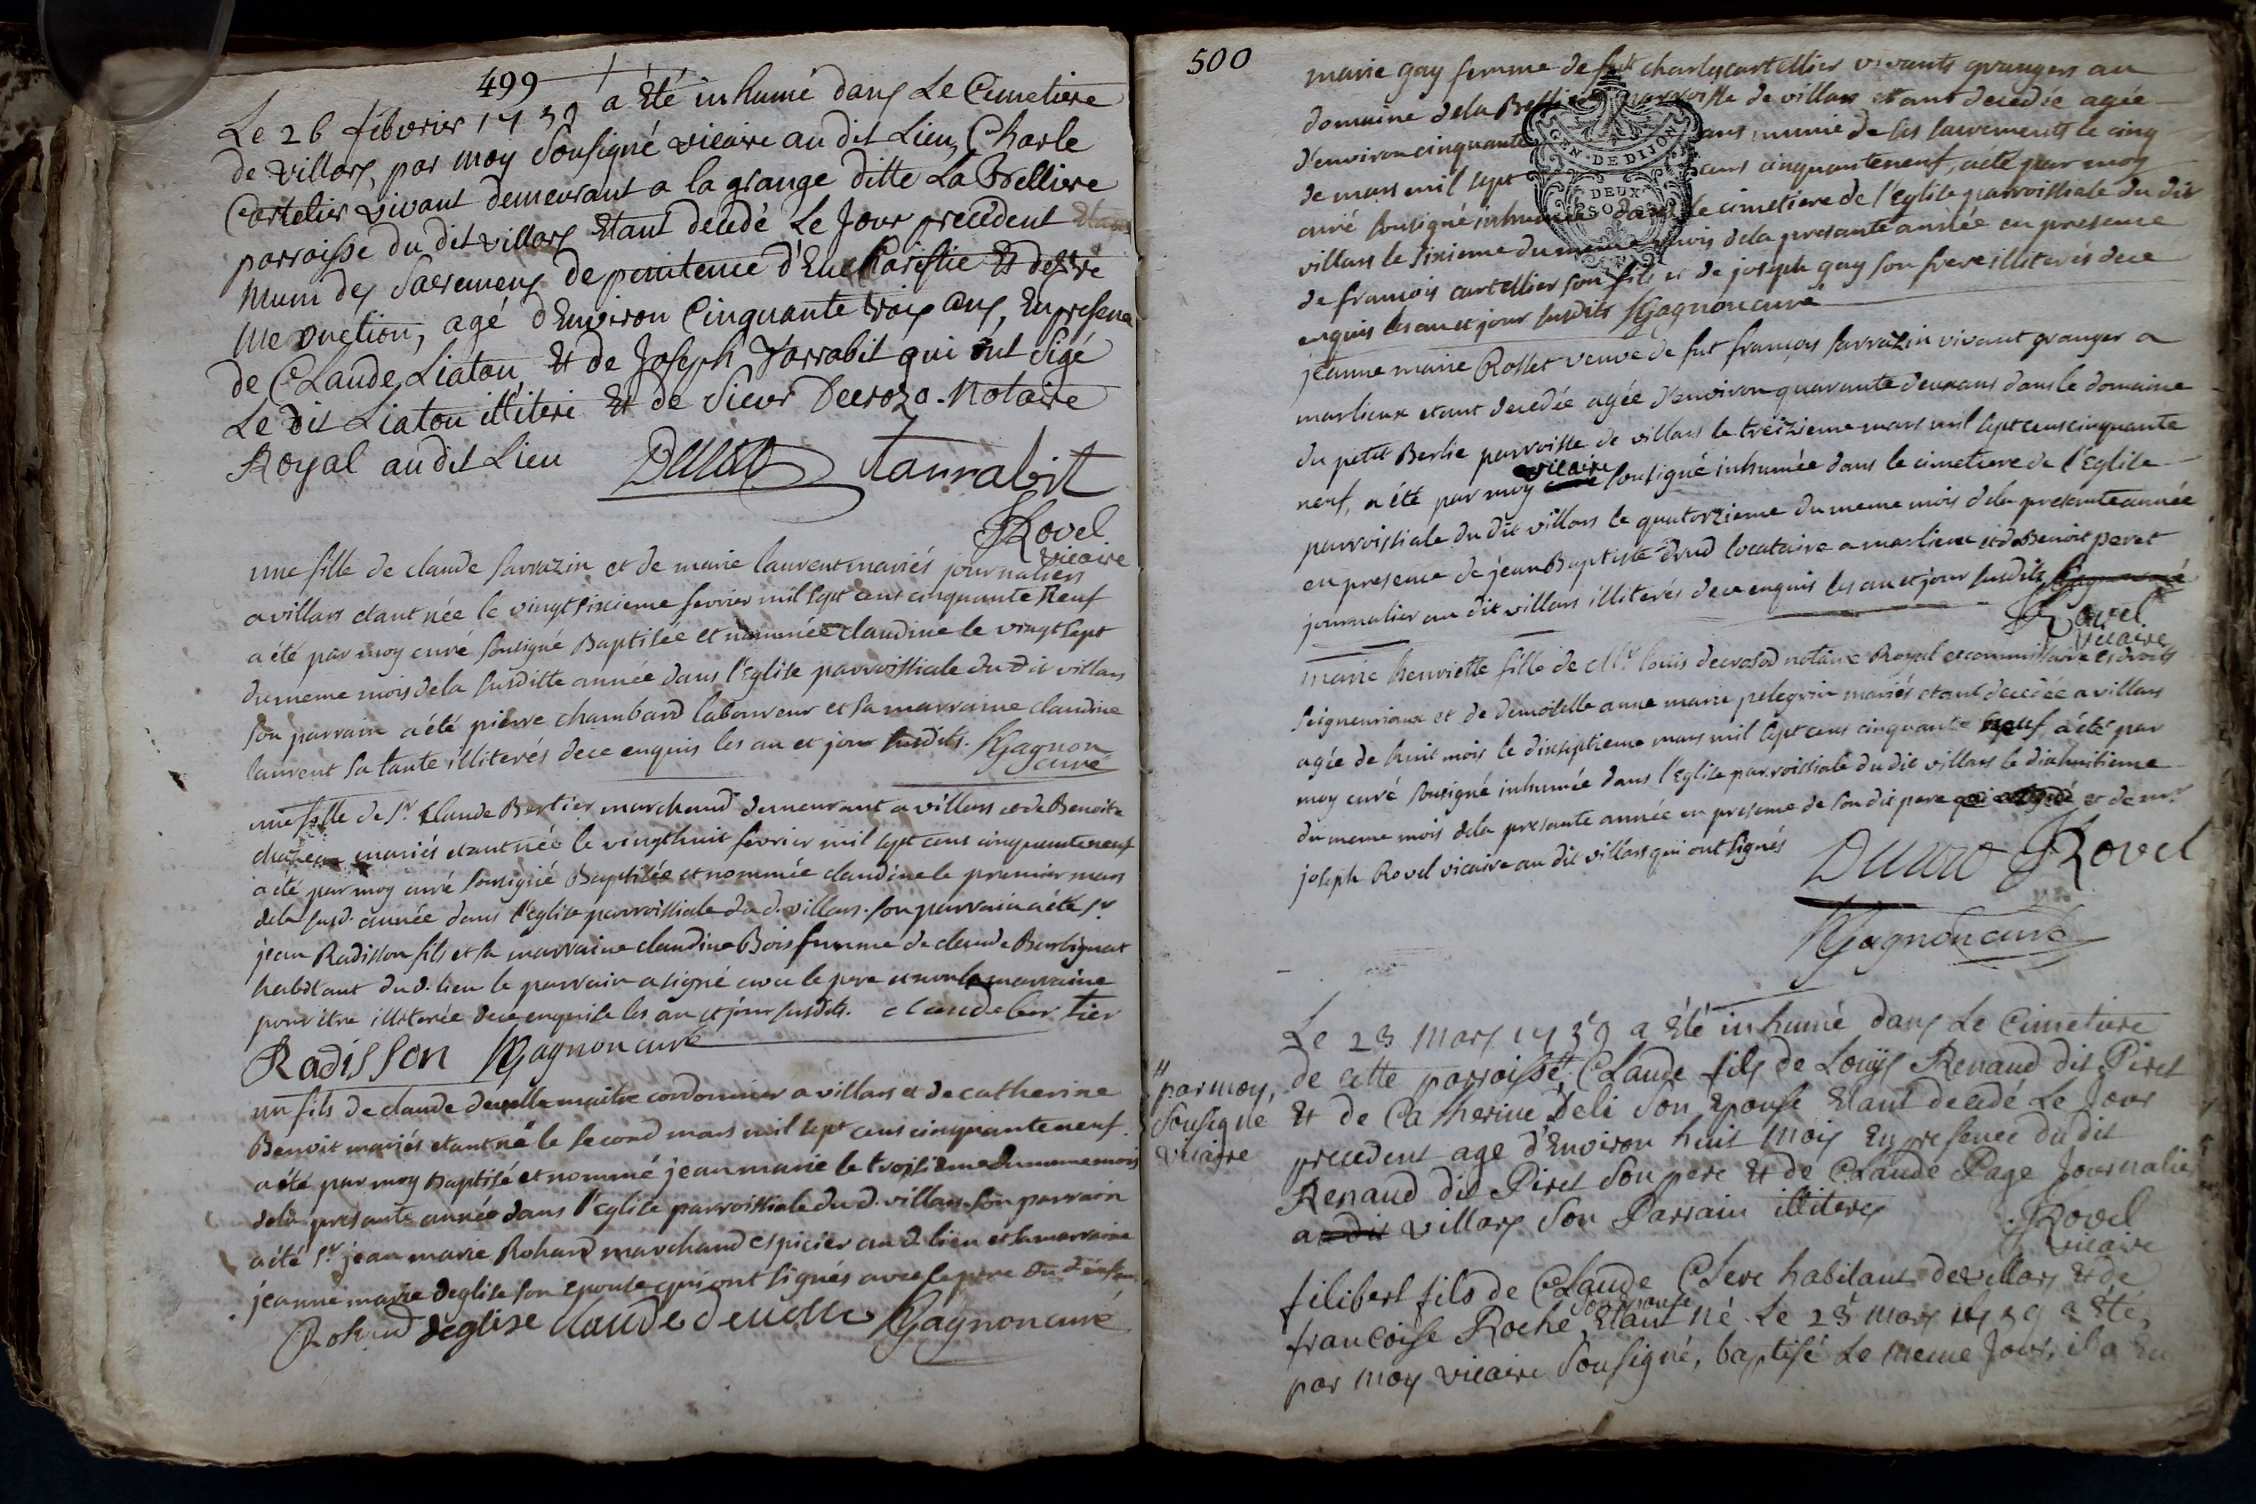 499
Le 26 febvrier 1759 a Eté inhumé dans Le Cimetiere
de villars, par moy Sousigné vicaire au dit Lieu, Charle
Cartelier vivant demeurant a la grange ditte La Brelliere
parroisse du dit villars Etant decedé Le Jour precedent
Muni des Sacremens de penitence d'Eucharistie Et d'extre
me onction, agé d'Environ Cinquante trois ans, En presence
de Claude Liatou Et de Joseph Tarrabit qui ont Sigé
Le dit Liatou illiteré Et de Sieur Decrozo Notaire
Royal au dit Lieu
Tarrabit
JRovel
vicaire
une fille de claude Sarrazin et de marie laurent mariés journaliers
a villars etant née le vingt sixieme fevrier mil sept cens cinquante Neuf
a été par moy curé sousigné Baptisée et nommée claudine le vingt sept
du meme mois de la susditte année dans l'Eglise parroissiale du dit villars
son parrain a été pierre chambard laboureur et sa marraine claudine
laurent sa tante illiterés de ce enquis les an et jour susdits. Gagnon
curé
une fille de Sr. Claude Bertier marchand demeurant a villars et de Benoite
mariés etant née le vingt huit fevrier mil sept cens cinquante neuf
a été par moy curé sousigné Baptisée et nommée claudine le premier mars
dela susd. année dans l'eglise parroissiale du d. villars. son parrain a été Sr.
jean Radisson fils et sa marraine claudine Bois femme de claude Berbignat
habitant du d. lieu le parrain a signé avec le pere et non la marraine
pour être illiterée de ce enquise les an et jour susdits. claude ber tier
Radisson Gagnon curé
un fils de claude develle maitre cordonnier a villars et de catherine
Benoit mariés etant né le second mars mil sept cens cinquante neuf
a été par moy Baptisé et nommé jean marie le troisieme du meme mois
dela presante année dans l'Eglise parroissiale du d. villars son parrain
a été Sr. jean marie Rohard marchand espicier au d. lieu et sa marraine
jeanne marie deglise son epouse qui ont signés avec le pere du d. enfant
Rohard deglise claude develle Gagnon curé
500
marie gay femme de fut charles cartellier vivants grangers au
domaine dela parroisse de villars etant decedée agée
d'environ cinquante ans munie de ses sacrements le cinq
de mars mil sept cens cinquante neuf, a été par moy
curé sousigné inhumée dans le cimetiere de l'Eglise parroissiale du dit
villars le sixieme du meme mois dela presante année en presence
de françois cartellier son fils et de joseph gay son frere illiterés de ce
enquis les an et jour susdits Gagnon curé
jeanne marie Rosset veuve de fut françois sarrazin vivant granger a
marlieux etant decedée agée d'environ quarante deux ans dans le domaine
du petit Berlie parroisse de villars le treizieme mars mil sept cens cinquante
neuf, a été par moy vicaire sousigné inhumée dans le cimetiere de l'Eglise
parroissiale du dit villars le quatorzieme du meme mois dela presante année
en presence de jean Baptiste Drud locataire a marlieux et de Benoit peret
journalier au dit villars illiterés de ce enquis les an et jour susdits
JRovel
vicaire
marie henriette fille de Mr. louis decrosod notaire Royal et commissaire es droits
seigneuriaux et de demoiselle anne marie pelegrin mariés etant decedée a villars
agée de huit mois le dixseptieme mars mil sept cens cinquante neuf, a été par
moy curé sousigné inhumée dans l'Eglise parroissiale du dit villars le dixhuitieme
du meme mois dela presante année en presence de son dit pere et de mr.
joseph Rovel vicaire au dit villars qui ont signés
JRovel
Gagnon curé
Le 23 Mars 1759 a Eté inhumé dans Le Cimetiere
de cette parroisse, Claude fils de Louys Renaud dit Piret
par moy,
Sousigné
vicaire
Et de Catherine Deli Son Epouse Etant decedé Le Jour
precedent agé d'Environ huit mois En presence du dit
Renaud dit Piret Son pere Et de Claude Page Journalier
a villars Son Parrain illiteres
JRovel
vicaire
filibert fils de Claude Clere habitant de villars Et de
francoise Roche Son Epouse Etant né Le 23 Mars 1759 a Eté,
par moy vicaire Sousigné, baptisé Le meme Jour, il a Eu